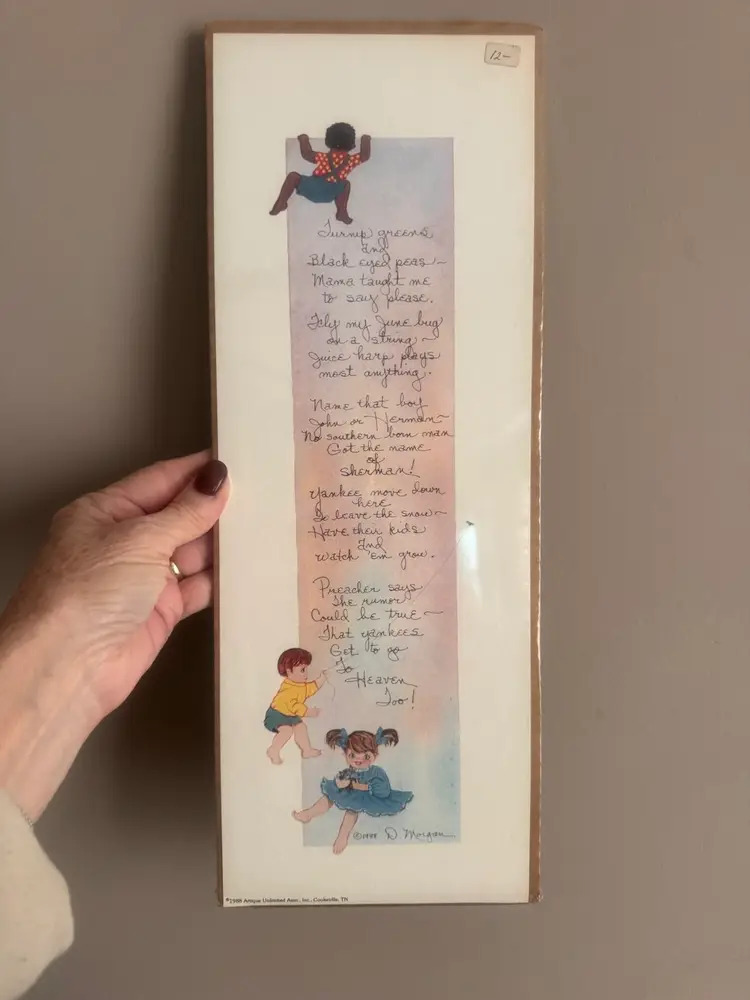 12-
Turnip greens
and
Black eyed peas~
Mama taught me
to say please.
Fly my June bug
on a string~
Juice harp plays
most anything.
Name that boy
John or Herman~
No southern born man
Got the name
of
Sherman!
Yankee move down
here
To leave the snow~
Have their kids
and
watch 'em grow.
Preacher says
The rumor
Could be true~
That yankees
Get to go
To
Heaven
Too!
©1988 D. Morgan
©1988 Antique Unlimited Assn., Inc., Cookeville, TN